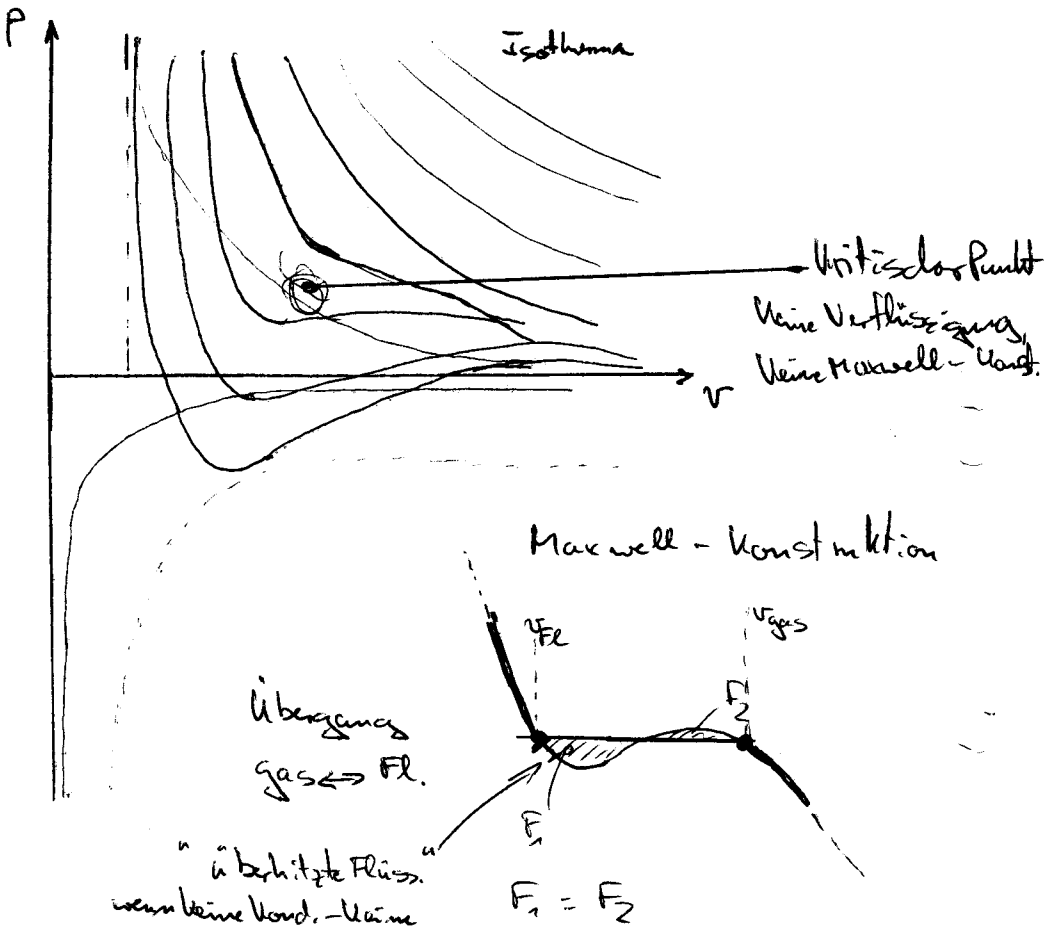 P
Isotherma
Kritischer Punkt
Keine Verflüssigung,
Keine Maxwell-Konst.
v
Maxwell-Konstruktion
v_Fl
v_gas
F_2
Übergang
gas ⇔ Fl.
F_1
"überhitzte Flüss."
wenn keine Kond.-Keime
F_1 = F_2